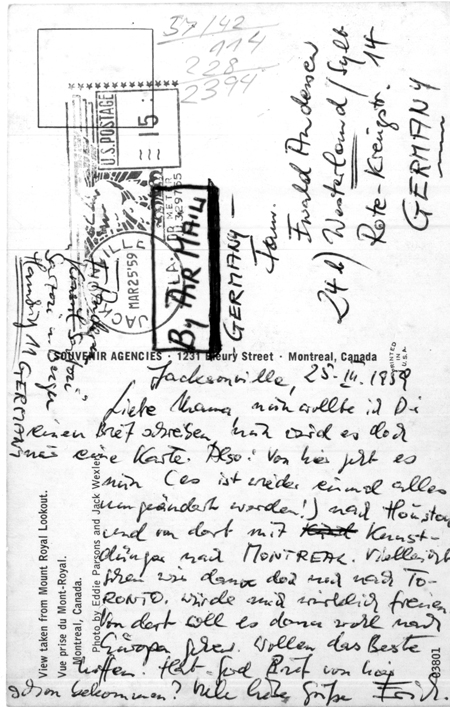 57/42
114
228
2394
U.S. POSTAGE
15
JACKSONVILLE, FLA.
MAR 25 '59
AIR METER
329755
By AIR MAIL
GERMANY
Fam.
Ewald Andersen
24b) Westerland/Sylt
Rote-Kreuzstr. 14
GERMANY
Hamburg 11 GERMANY
SOUVENIR AGENCIES · 1231 Fleury Street · Montreal, Canada
PRINTED IN U.S.A.
Jacksonville, 25. III. 1959
Liebe Mama, nun wollte ich Di
einen Brief schreiben, nun wird es doch
nur eine Karte. Also: Von hier geht es
nun (es ist wieder einmal alles
umgeändert worden!) nach Houston
und von dort mit Kunst-
dünger nach MONTREAL. Vielleicht
gehen wir dann doch nach TO-
RONTO. würde mich wirklich freuen
Von dort soll es dann wohl nach
Europa gehen. Wollen das Beste
hoffen. Brief von hier
schon bekommen? Viele liebe Grüße Erich.
View taken from Mount Royal Lookout.
Vue prise du Mont-Royal.
Montreal, Canada.
Photo by Eddie Parsons and Jack Wexler
03801